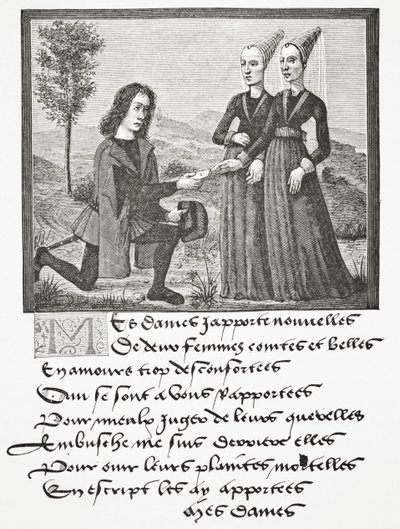 MEs dames Japporte nouvelles
De deux femmes cointes et belles
En amours trop desconfortees
Qui se sont a vous Rapportees
Pour mieulx Juger de leurs querelles
Ambusche me suis derriere elles
Pour ouir leurs plaintes mortelles
En escript les ay apportees
Mes dames